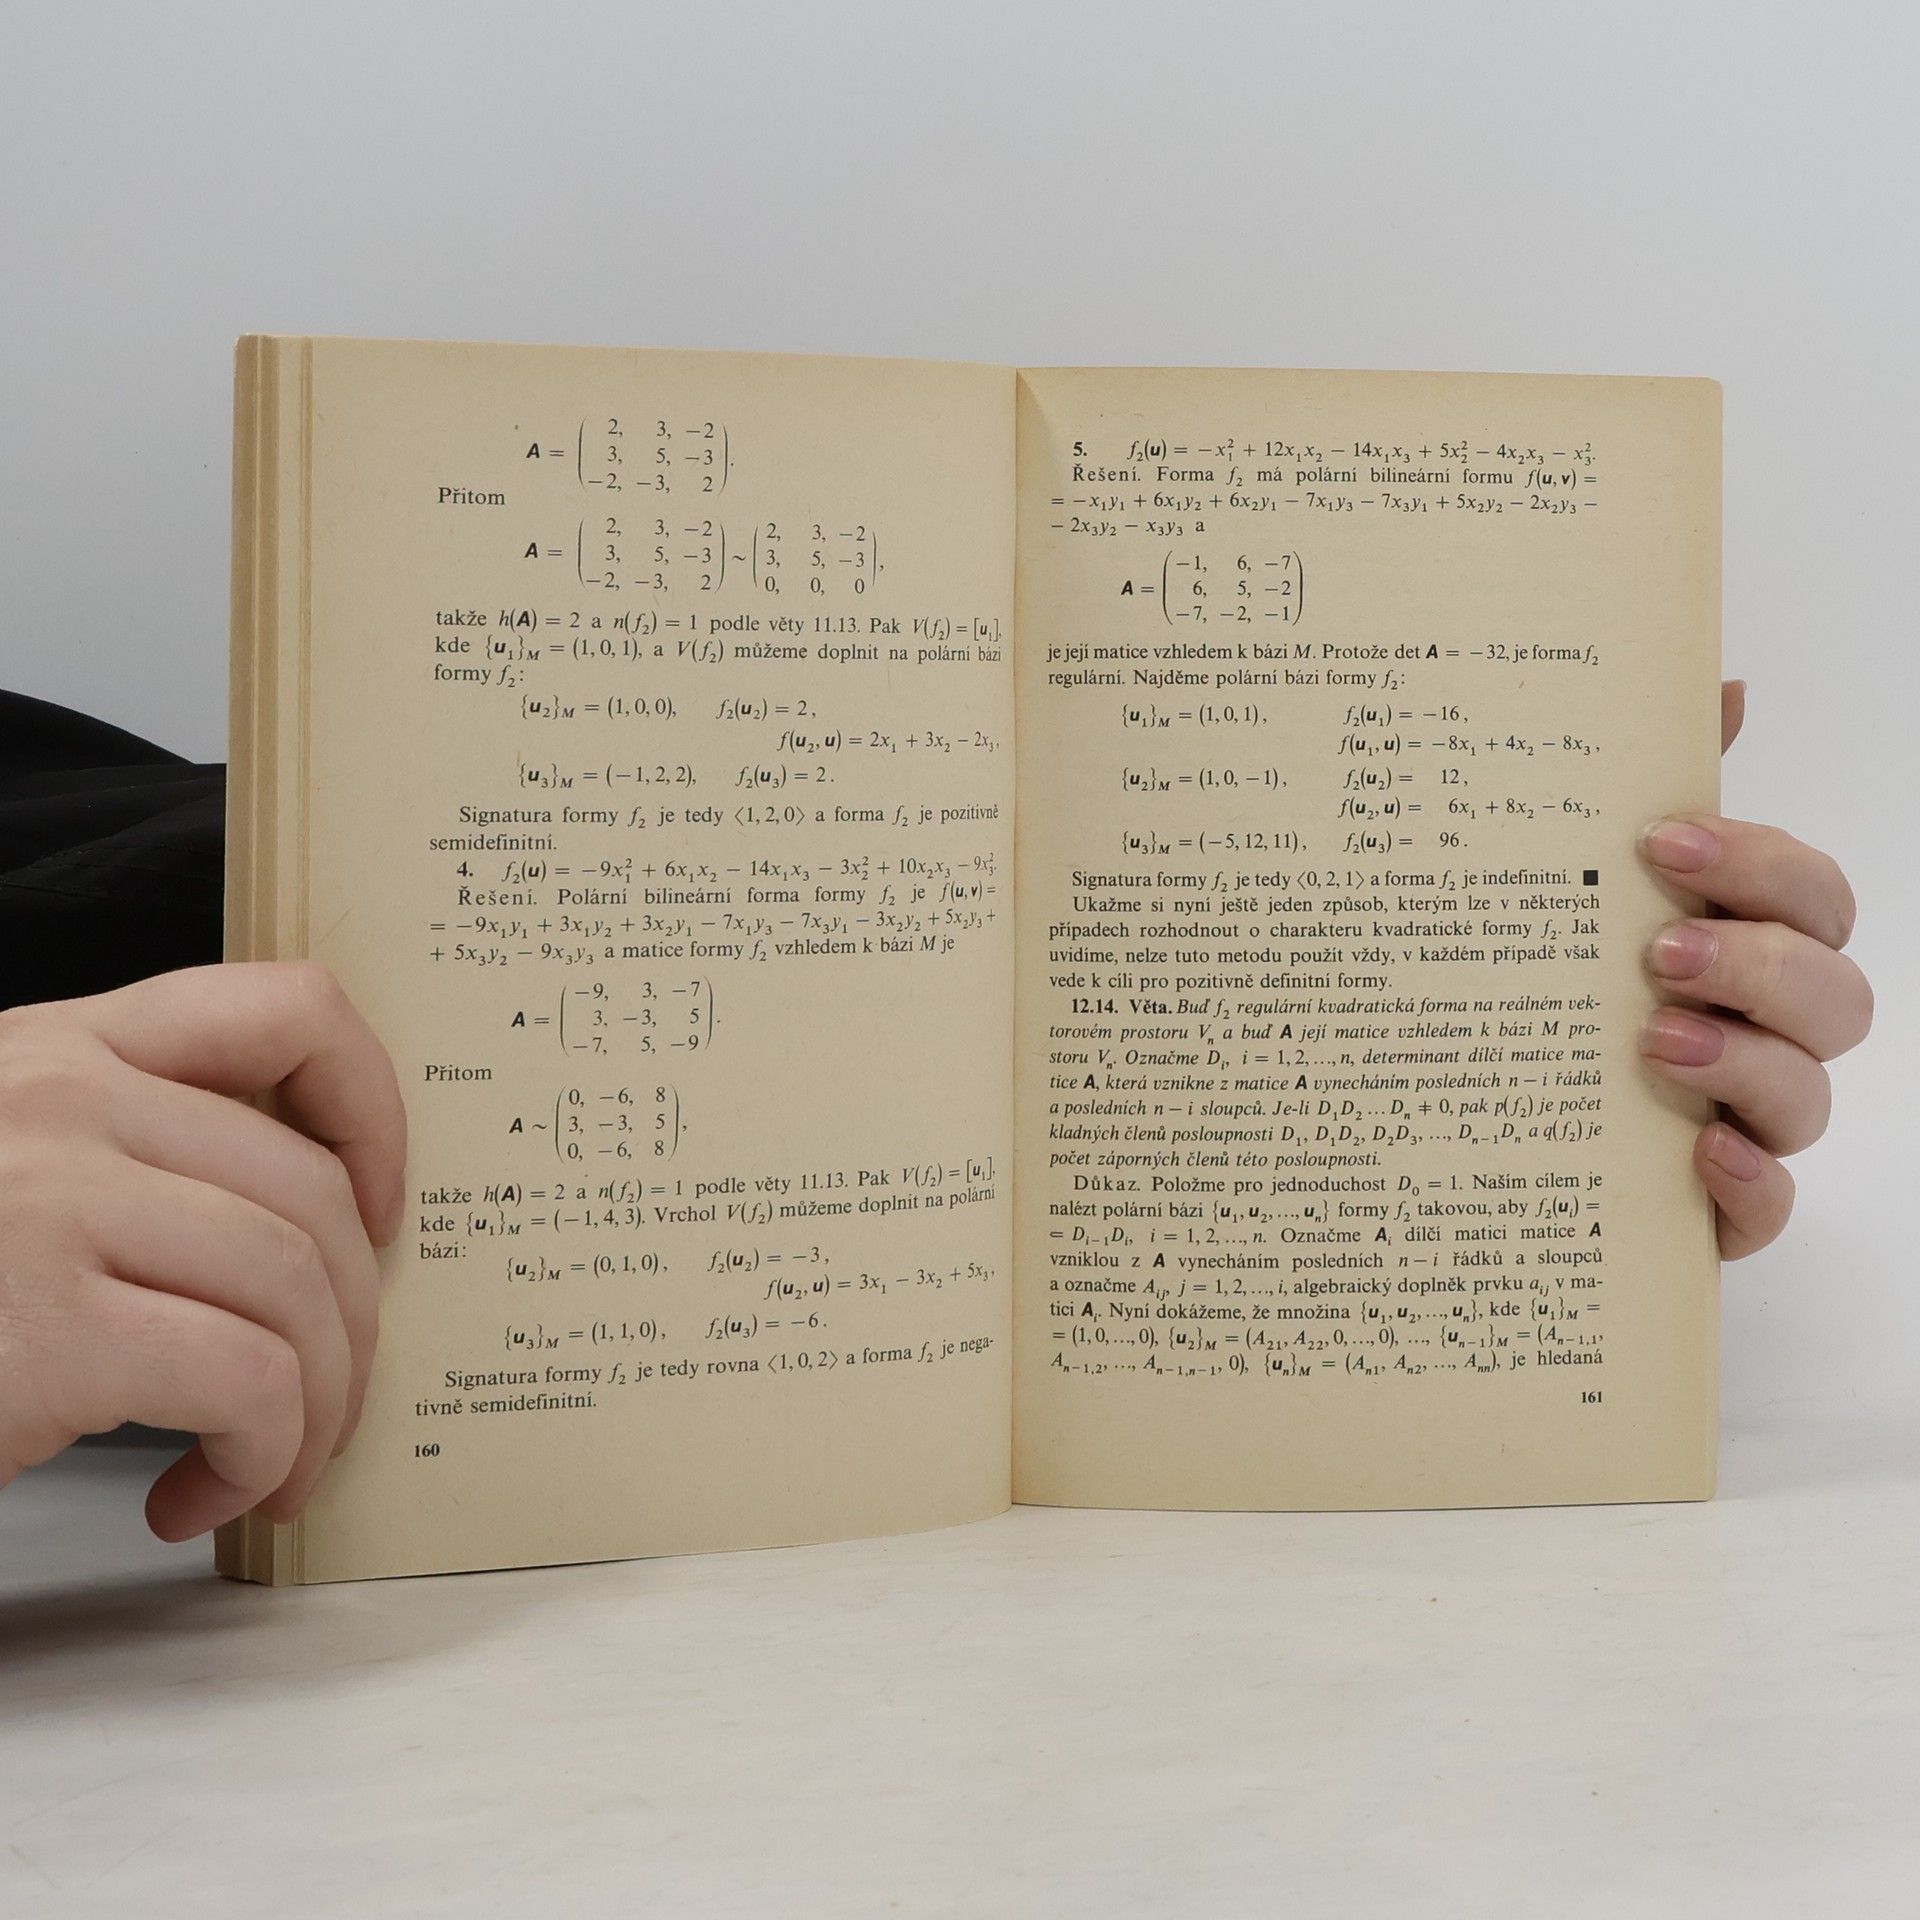 A = ( 2, 3, −2
3, 5, −3
−2, −3, 2 ).
Přitom
A = ( 2, 3, −2 ) ∼ ( 2, 3, −2 )
3, 5, −3 3, 5, −3
−2, −3, 2 0, 0, 0 ,
takže h(A) = 2 a n(f₂) = 1 podle věty 11.13. Pak V(f₂) = [u₁],
kde {u₁}_M = (1, 0, 1), a V(f₂) můžeme doplnit na polární bázi
formy f₂:
{u₂}_M = (1, 0, 0), f₂(u₂) = 2,
f(u₂, u) = 2x₁ + 3x₂ − 2x₃,
{u₃}_M = (−1, 2, 2), f₂(u₃) = 2.
Signatura formy f₂ je tedy ⟨1, 2, 0⟩ a forma f₂ je pozitivně
semidefinitní.
4. f₂(u) = −9x₁² + 6x₁x₂ − 14x₁x₃ − 3x₂² + 10x₂x₃ − 9x₃².
Řešení. Polární bilineární forma formy f₂ je f(u, v) =
= −9x₁y₁ + 3x₁y₂ + 3x₂y₁ − 7x₁y₃ − 7x₃y₁ − 3x₂y₂ + 5x₂y₃ +
+ 5x₃y₂ − 9x₃y₃ a matice formy f₂ vzhledem k bázi M je
A = ( −9, 3, −7
3, −3, 5
−7, 5, −9 ).
Přitom
A ∼ ( 0, −6, 8
3, −3, 5
0, −6, 8 ),
takže h(A) = 2 a n(f₂) = 1 podle věty 11.13. Pak V(f₂) = [u₁],
kde {u₁}_M = (−1, 4, 3). Vrchol V(f₂) můžeme doplnit na polární
bázi:
{u₂}_M = (0, 1, 0), f₂(u₂) = −3,
f(u₂, u) = 3x₁ − 3x₂ + 5x₃,
{u₃}_M = (1, 1, 0), f₂(u₃) = −6.
Signatura formy f₂ je tedy rovna ⟨1, 0, 2⟩ a forma f₂ je nega-
tivně semidefinitní.
160
5. f₂(u) = −x₁² + 12x₁x₂ − 14x₁x₃ + 5x₂² − 4x₂x₃ − x₃².
Řešení. Forma f₂ má polární bilineární formu f(u, v) =
= −x₁y₁ + 6x₁y₂ + 6x₂y₁ − 7x₁y₃ − 7x₃y₁ + 5x₂y₂ − 2x₂y₃ −
− 2x₃y₂ − x₃y₃ a
A = ( −1, 6, −7
6, 5, −2
−7, −2, −1 )
je její matice vzhledem k bázi M. Protože det A = −32, je forma f₂
regulární. Najděme polární bázi formy f₂:
{u₁}_M = (1, 0, 1), f₂(u₁) = −16,
f(u₁, u) = −8x₁ + 4x₂ − 8x₃,
{u₂}_M = (1, 0, −1), f₂(u₂) = 12,
f(u₂, u) = 6x₁ + 8x₂ − 6x₃,
{u₃}_M = (−5, 12, 11), f₂(u₃) = 96.
Signatura formy f₂ je tedy ⟨0, 2, 1⟩ a forma f₂ je indefinitní. ■
Ukažme si nyní ještě jeden způsob, kterým lze v některých
případech rozhodnout o charakteru kvadratické formy f₂. Jak
uvidíme, nelze tuto metodu použít vždy, v každém případě však
vede k cíli pro pozitivně definitní formy.
12.14. Věta. Buď f₂ regulární kvadratická forma na reálném vek-
torovém prostoru Vₙ a buď A její matice vzhledem k bázi M pro-
storu Vₙ. Označme Dᵢ, i = 1, 2, ..., n, determinant dílčí matice ma-
tice A, která vznikne z matice A vynecháním posledních n − i řádků
a posledních n − i sloupců. Je-li D₁D₂ ... Dₙ ≠ 0, pak p(f₂) je počet
kladných členů posloupnosti D₁, D₁D₂, D₂D₃, ..., Dₙ₋₁Dₙ a q(f₂) je
počet záporných členů této posloupnosti.
Důkaz. Položme pro jednoduchost D₀ = 1. Naším cílem je
nalézt polární bázi {u₁, u₂, ..., uₙ} formy f₂ takovou, aby f₂(uᵢ) =
= Dᵢ₋₁Dᵢ, i = 1, 2, ..., n. Označme Aᵢ dílčí matici matice A
vzniklou z A vynecháním posledních n − i řádků a sloupců
a označme Aᵢⱼ, j = 1, 2, ..., i, algebraický doplněk prvku aᵢⱼ v ma-
tici Aᵢ. Nyní dokážeme, že množina {u₁, u₂, ..., uₙ}, kde {u₁}_M =
= (1, 0, ..., 0), {u₂}_M = (A₂₁, A₂₂, 0, ..., 0), ..., {uₙ₋₁}_M = (Aₙ₋₁,₁,
Aₙ₋₁,₂, ..., Aₙ₋₁,ₙ₋₁, 0), {uₙ}_M = (Aₙ₁, Aₙ₂, ..., Aₙₙ), je hledaná
161